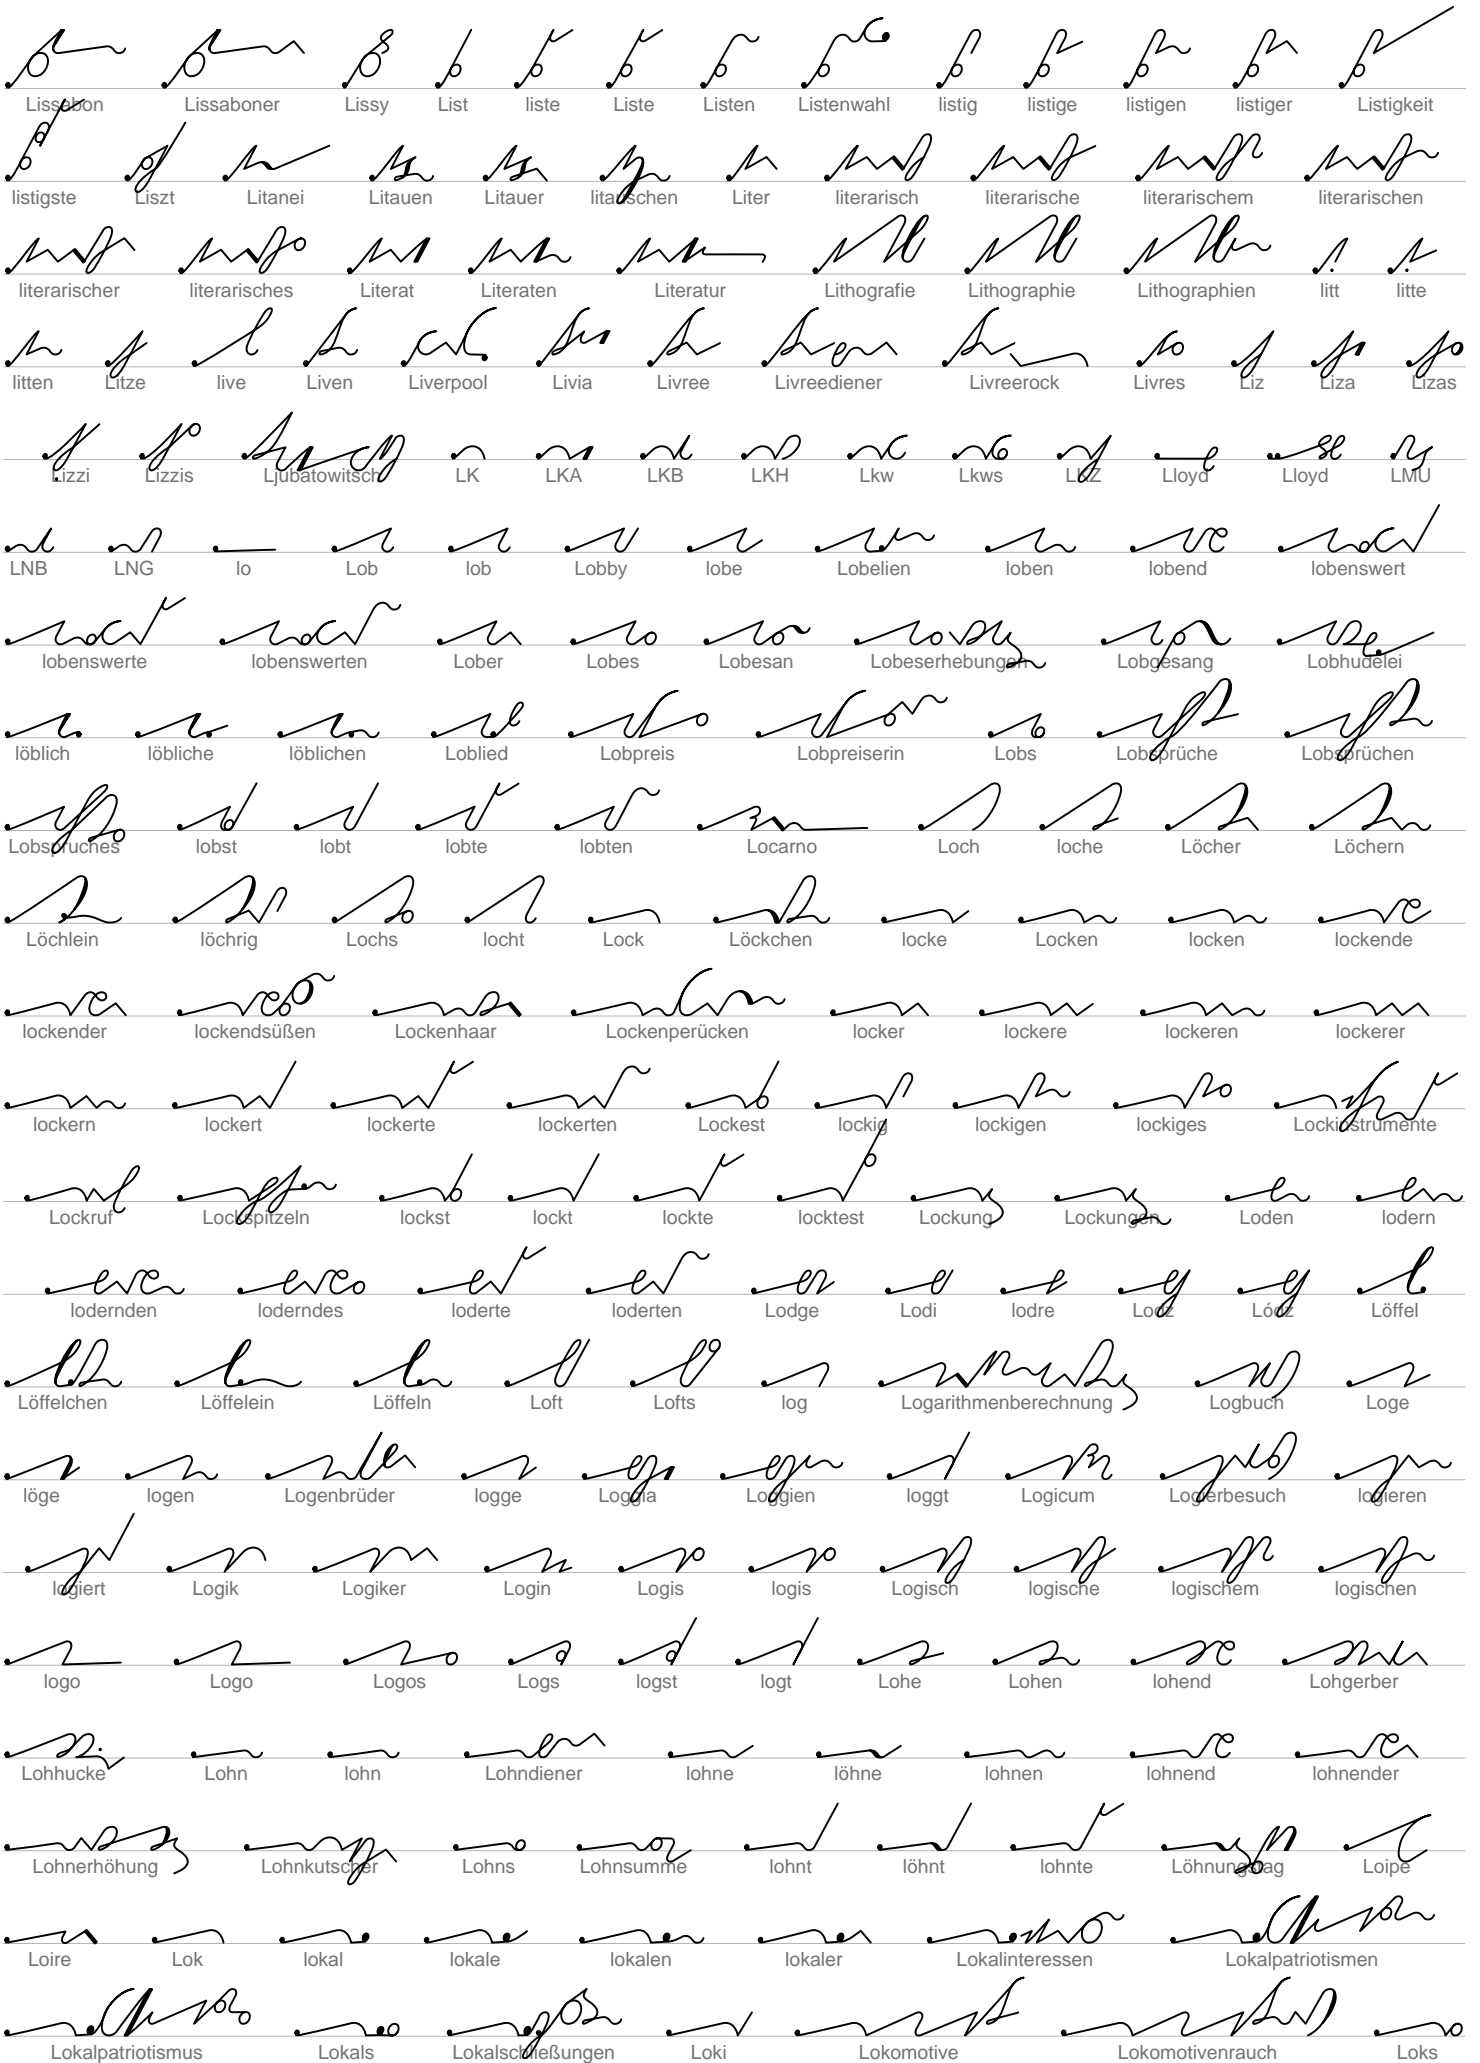 Lissabon Lissaboner Lissy List liste Liste Listen Listenwahl listig listige listigen listiger Listigkeit
listigste Liszt Litanei Litauen Litauer litauischen Liter literarisch literarische literarischem literarischen
literarischer literarisches Literat Literaten Literatur Lithografie Lithographie Lithographien litt litte
litten Litze live Liven Liverpool Livia Livree Livreediener Livreerock Livres Liz Liza Lizas
Lizzi Lizzis Ljubatowitsch LK LKA LKB LKH Lkw Lkws LKZ Lloyd Lloyd LMU
LNB LNG lo Lob lob Lobby lobe Lobelien loben lobend lobenswert
lobenswerte lobenswerten Lober Lobes Lobesan Lobeserhebungen Lobgesang Lobhudelei
löblich löbliche löblichen Loblied Lobpreis Lobpreiserin Lobs Lobsprüche Lobsprüchen
Lobspruches lobst lobt lobte lobten Locarno Loch loche Löcher Löchern
Löchlein löchrig Lochs locht Lock Löckchen locke Locken locken lockende
lockender lockendsüßen Lockenhaar Lockenperücken locker lockere lockeren lockerer
lockern lockert lockerte lockerten Lockest lockig lockigen lockiges Lockinstrumente
Lockruf Lockspitzeln lockst lockt lockte locktest Lockung Lockungen Loden lodern
lodernden loderndes loderte loderten Lodge Lodi lodre Lodz Lódz Löffel
Löffelchen Löffelein Löffeln Loft Lofts log Logarithmenberechnung Logbuch Loge
löge logen Logenbrüder logge Loggia Loggien loggt Logicum Logierbesuch logieren
logiert Logik Logiker Login Logis logis Logisch logische logischem logischen
logo Logo Logos Logs logst logt Lohe Lohen lohend Lohgerber
Lohhucke Lohn lohn Lohndiener lohne löhne lohnen lohnend lohnender
Lohnerhöhung Lohnkutscher Lohns Lohnsumme lohnt löhnt lohnte Löhnungstag Loipe
Loire Lok lokal lokale lokalen lokaler Lokalinteressen Lokalpatriotismen
Lokalpatriotismus Lokals Lokalschließungen Loki Lokomotive Lokomotivenrauch Loks